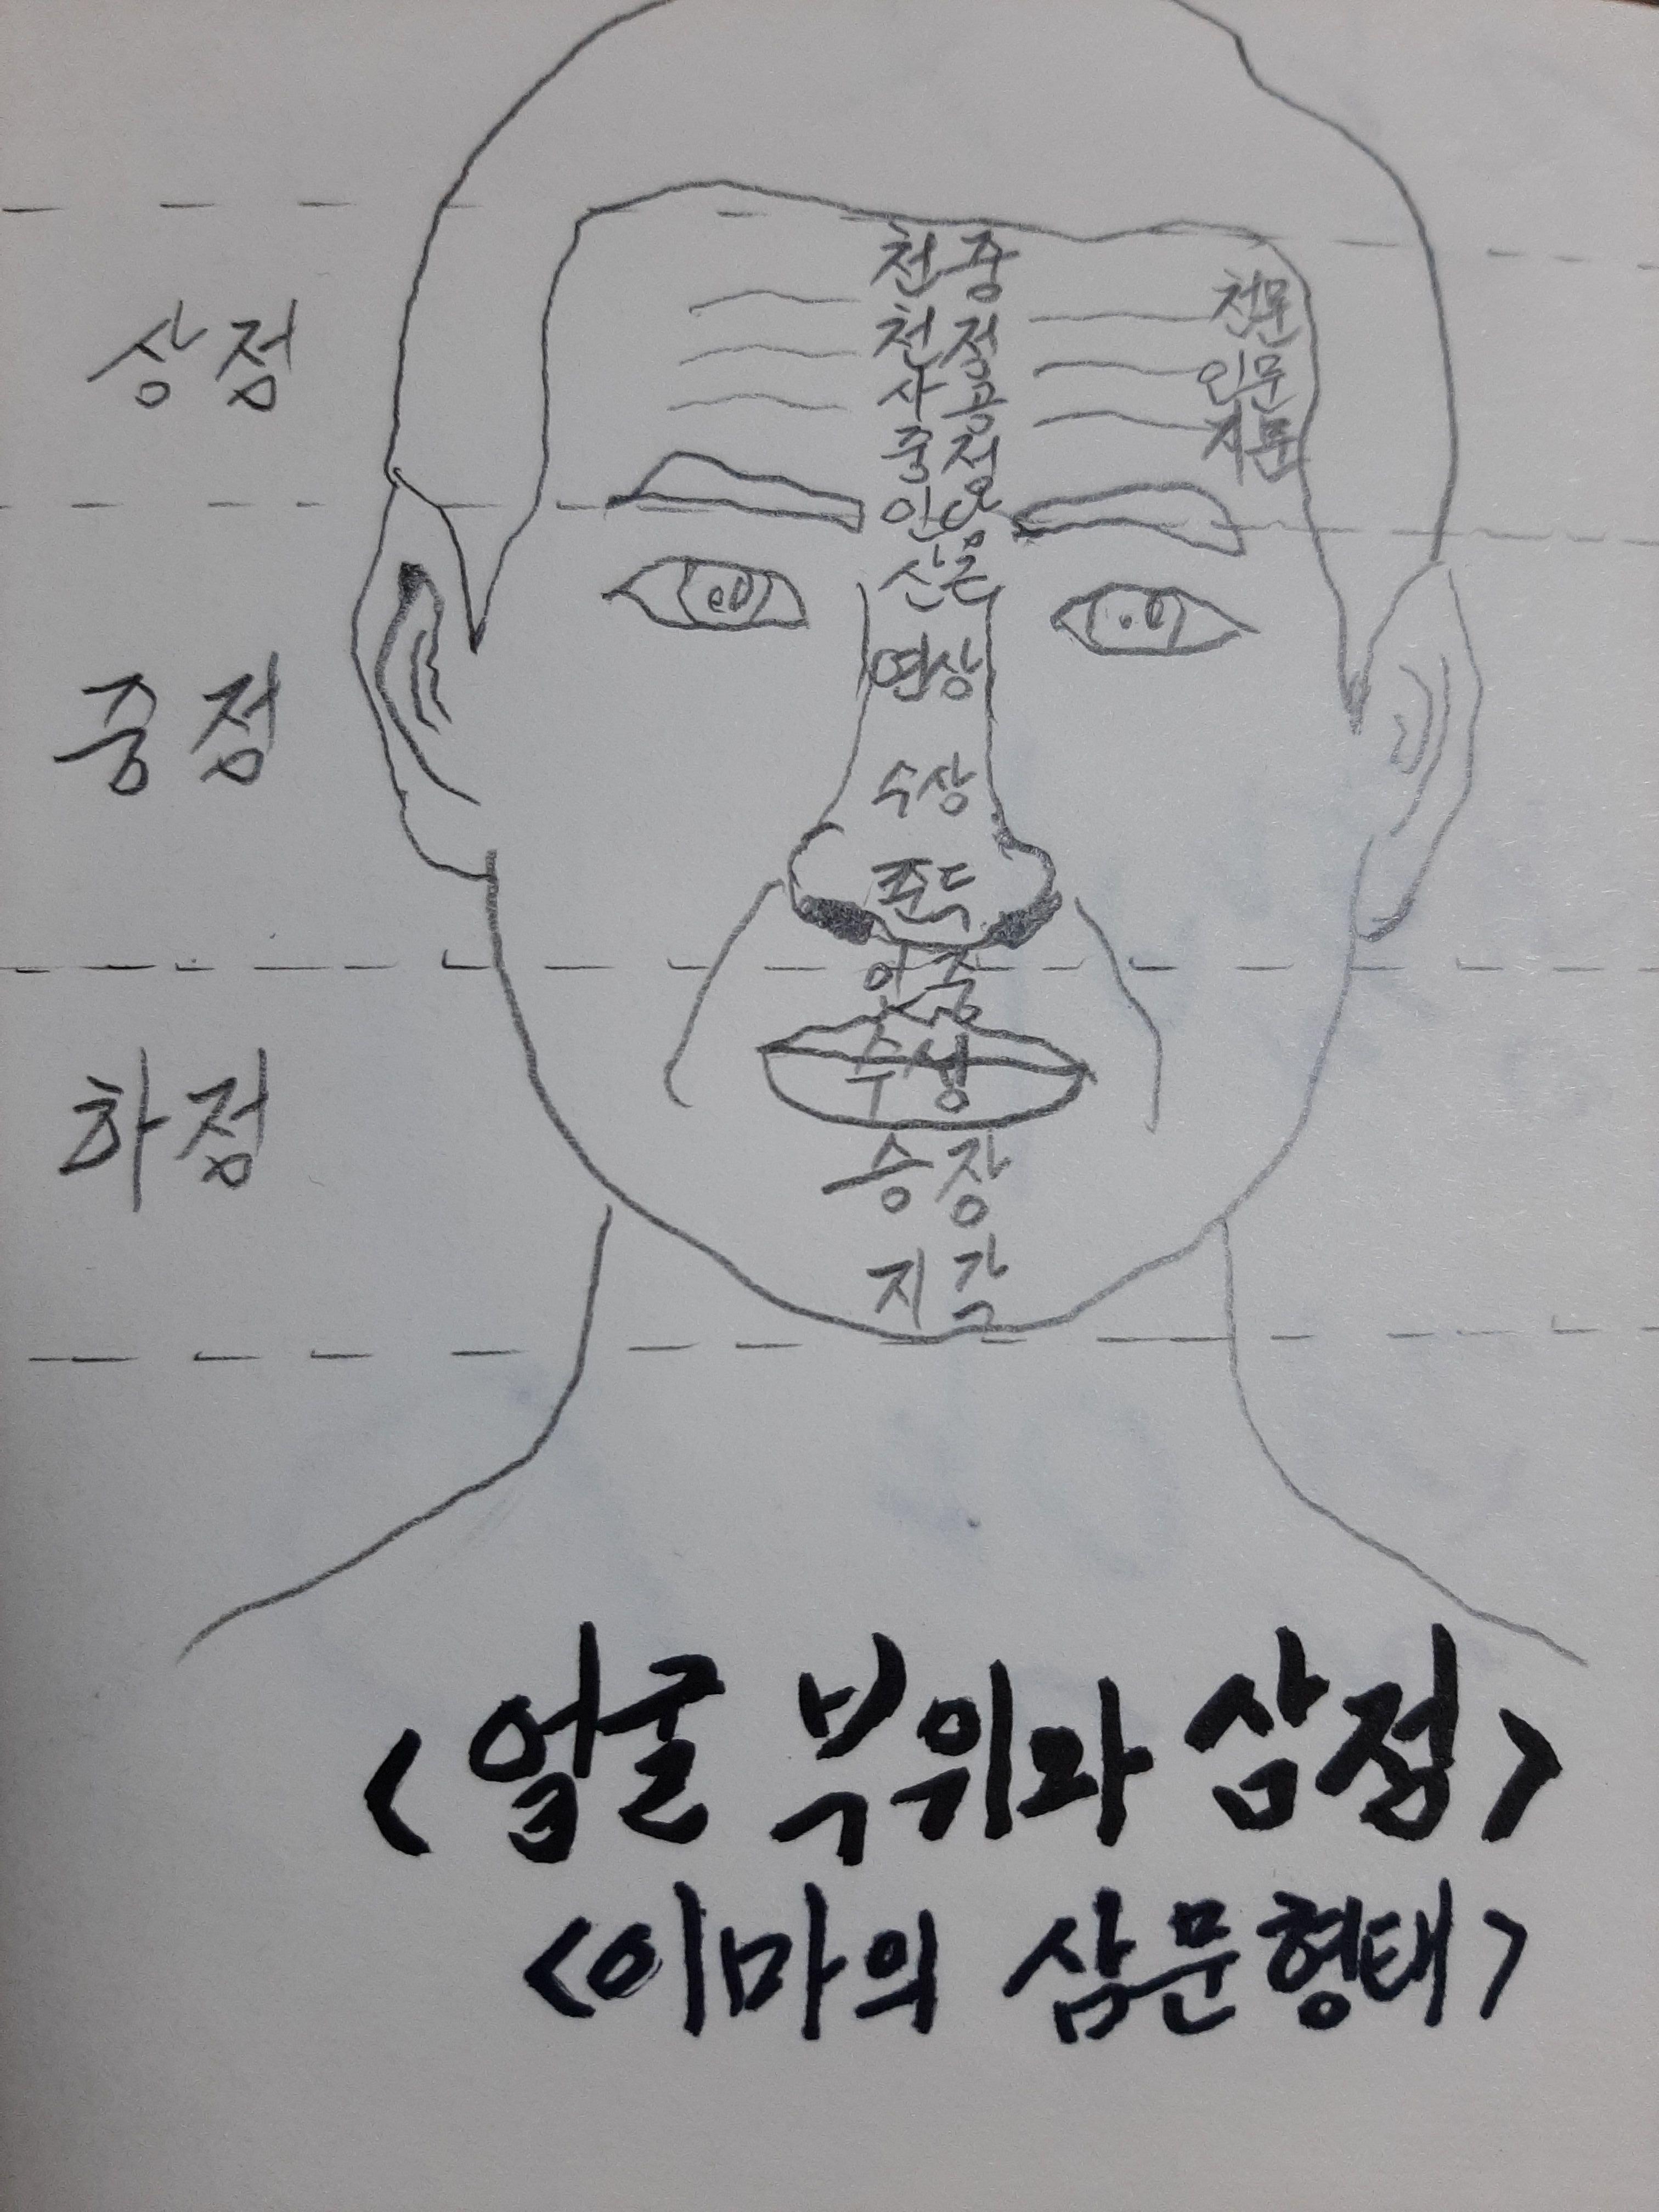 천중
천문
천정
상점
인문
사공
지문
중정
인당
산근
연상
중점
수상
준두
인중
수성
하점
승장
지각
<얼굴 부위와 삼점>
<이마의 삼문형태>